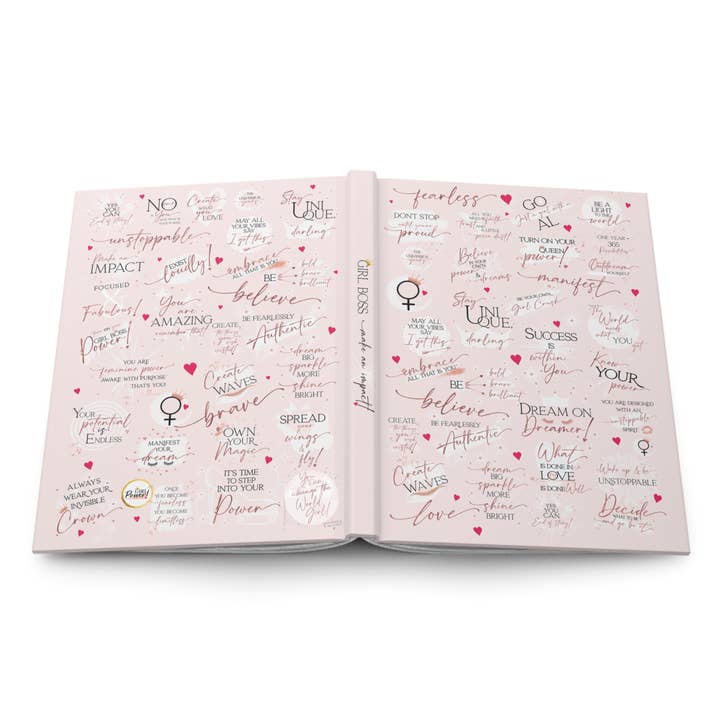 YES
YOU CAN
End of Story!
NO
Create
WHAT
you
LOVE
THE
UNIVERSE IS
Stay
UNI
QUE.
darling
unstoppable
MAY ALL
YOUR VIBES
SAY
I got this
Make an
IMPACT
EXIST
loudly!
embrace
ALL THAT YOU ARE
BE
bold
brave
brilliant
believe
FOCUSED
Fabulous!
You are
AMAZING
remember that!
GIRL BOSS
Power!
CREATE,
BE FEARLESSLY
Authentic
YOU ARE
feminine power
AWAKE WITH PURPOSE
THAT'S YOU!
Create
WAVES
dream
BIG
sparkle
MORE
shine
BRIGHT
brave
YOUR
potential
is
ENDLESS
OWN
YOUR
Magic
SPREAD
your
wings
& fly!
MANIFEST
YOUR
dream
ALWAYS
WEAR YOUR
INVISIBLE
Crown
ONCE
YOU BECOME
fearless
YOU BECOME
limitless
IT'S TIME
TO STEP
INTO YOUR
Power
GIRL BOSS make an impact
fearless
GO
AL
BE A
LIGHT TO
the
world
DON'T STOP
until you're
proud
TURN ON YOUR
QUEEN
power!
ONE YEAR =
365
Possibilities
Believe
IN YOUR
power
dreams
Outdream
YOURSELF
manifest
Stay
UNI
QUE.
darling
BE YOUR OWN
Girl Crush
MAY ALL
YOUR VIBES
SAY
I got this
The World
needs
what
YOU
got
SUCCESS
IS
within
You
embrace
ALL THAT YOU ARE
BE
bold
brave
brilliant
believe
Know
YOUR
power
BE FEARLESSLY
Authentic
CREATE
DREAM ON
Dreamer!
YOU ARE DESIGNED
WITH AN
unstoppable
SPIRIT
Create
WAVES
dream
BIG
sparkle
MORE
shine
BRIGHT
What
IS DONE IN
LOVE
IS DONE Well
Wake up & be
UNSTOPPABLE
love
YES
YOU CAN
End of Story!
Decide
WHAT TO BE
and go be it